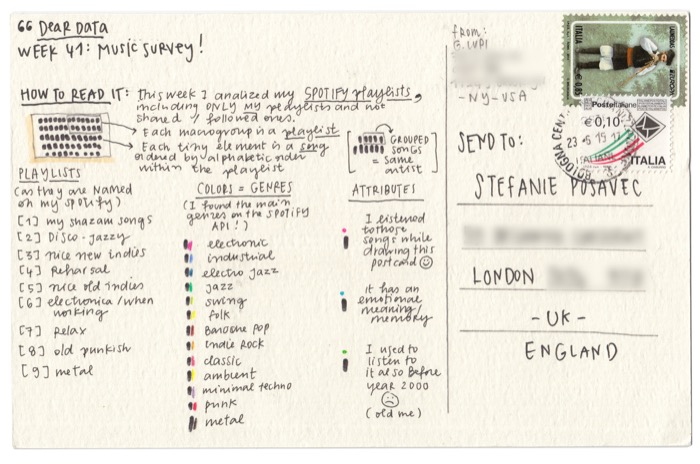 66 Dear Data
WEEK 41: MUSIC SURVEY!
HOW TO READ IT: This week I analized my SPOTIFY playlists,
including ONLY my playlists and not
shared / followed ones.
Each macrogroup is a playlist
Each tiny element is a song
ordered by alphabetic order
within the playlist
GROUPED
SONGS
= same
artist
PLAYLISTS
(as they are named
on my spotify)
[1] my shazam songs
[2] Disco-jazzy
[3] nice new indies
[4] Reharsal
[5] nice old indies
[6] electronica/when
working
[7] relax
[8] old punkish
[9] metal
COLORS = GENRES
(I found the main
genres on the SPOTIFY
API!)
electronic
industrial
electro jazz
jazz
swing
folk
Baroque pop
Indie Rock
classic
ambient
minimal techno
punk
metal
ATTRIBUTES
I listened
to those
songs while
drawing this
postcard
it has an
emotional
meaning/
memory
I used to
listen to
it also before
year 2000
(old me)
from:
G. LUPI
-NY-USA
SEND TO:
STEFANIE POSAVEC
LONDON
-UK-
ENGLAND
ITALIA
€0,85
Posteitaliane
€0,10
ITALIA
BOLOGNA CEN